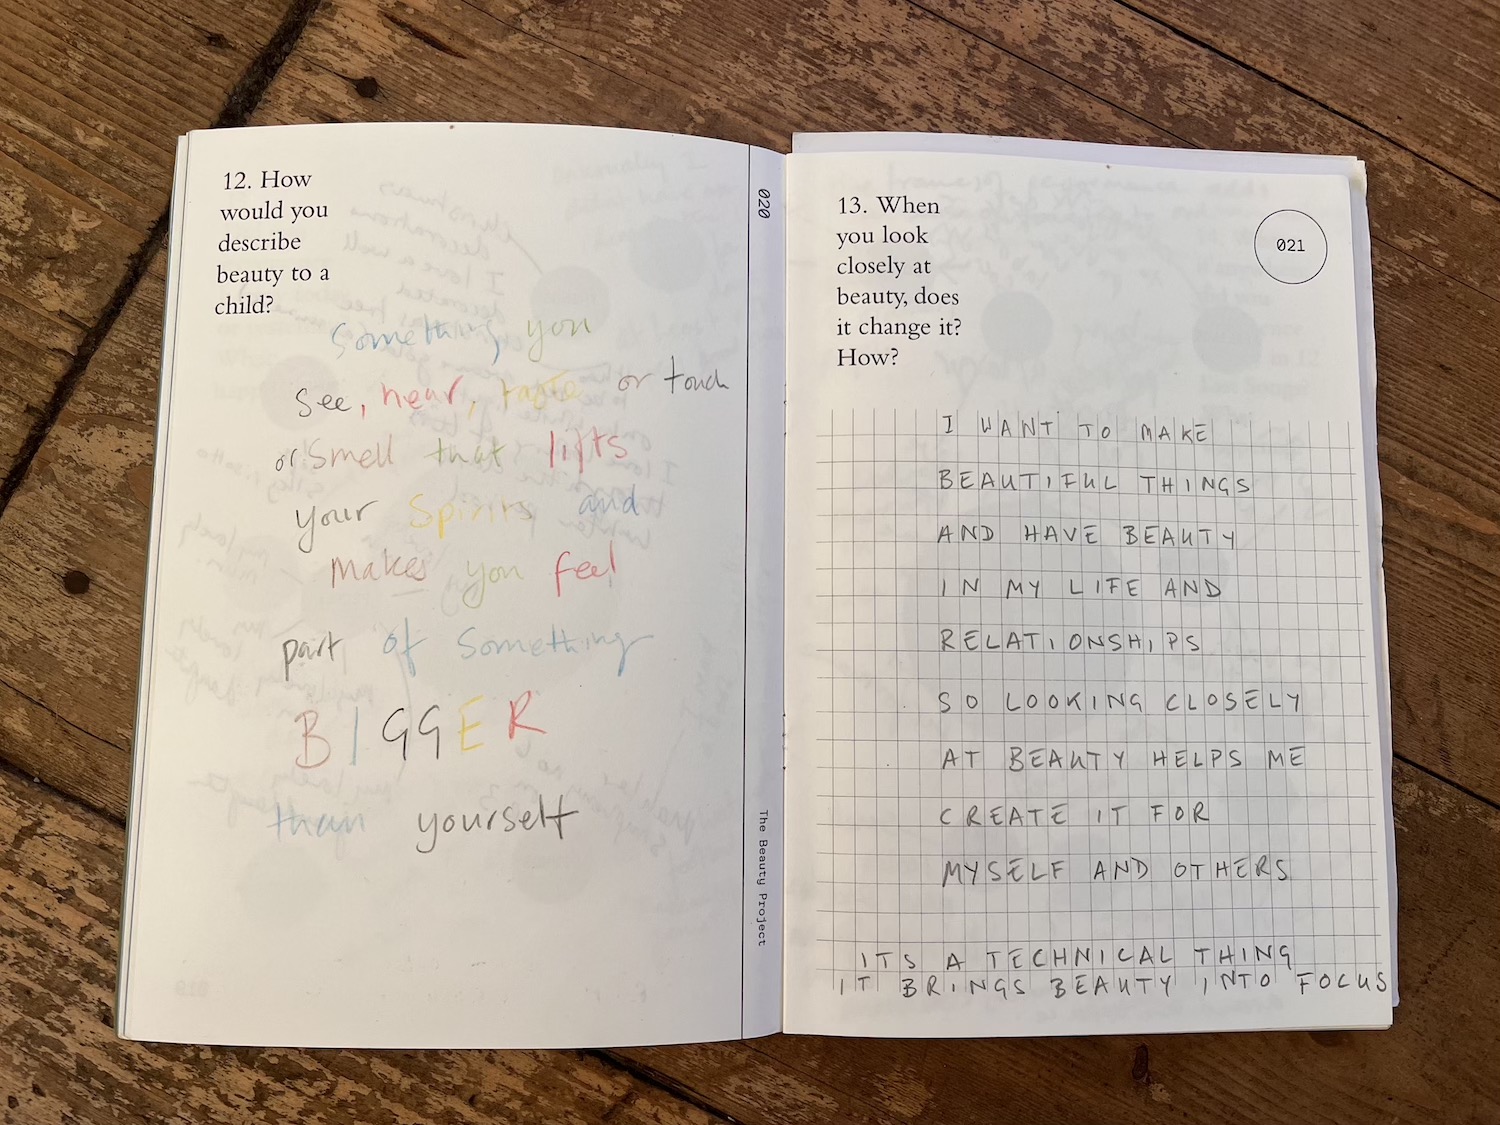 12. How
would you
describe
beauty to a
child?
Something you
see, hear, taste or touch
or smell that lifts
your spirits and
makes you feel
part of something
BIGGER
than yourself
020
The Beauty Project
13. When
you look
closely at
beauty, does
it change it?
How?
021
I WANT TO MAKE
BEAUTIFUL THINGS
AND HAVE BEAUTY
IN MY LIFE AND
RELATIONSHIPS
SO LOOKING CLOSELY
AT BEAUTY HELPS ME
CREATE IT FOR
MYSELF AND OTHERS
ITS A TECHNICAL THING
IT BRINGS BEAUTY INTO FOCUS